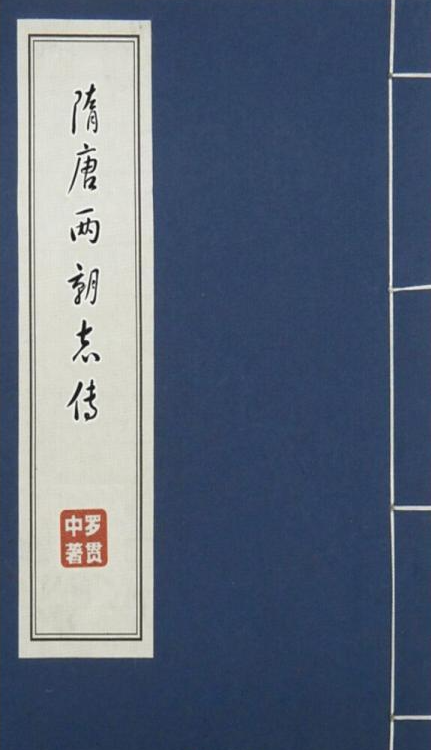 隋唐两朝志传
罗贯
中著